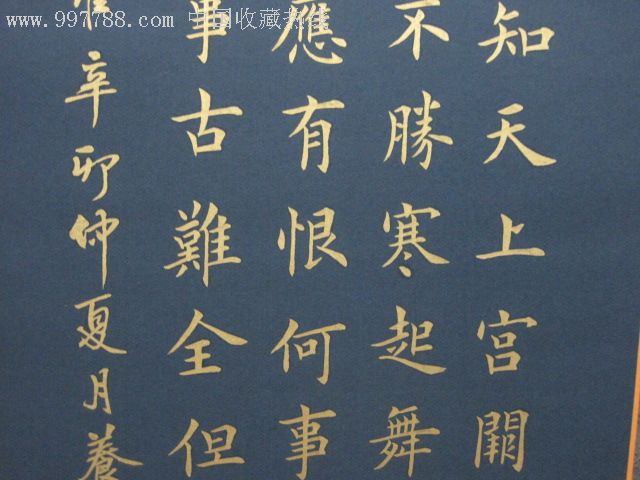 www.997788.com 中国收藏热线
知天上宮闕
不勝寒起舞
應有恨何事
事古難全但
辛卯仲夏月養